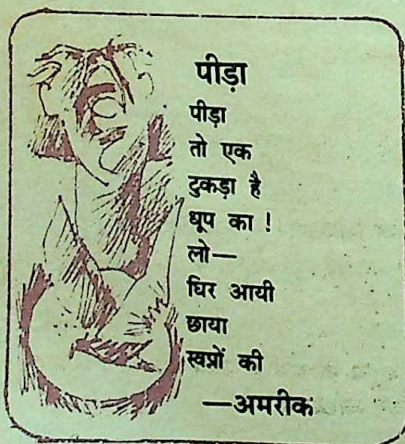 पीड़ा
पीड़ा
तो एक
टुकड़ा है
धूप का !
लो—
घिर आयी
छाया
स्वप्नों की
—अमरीक